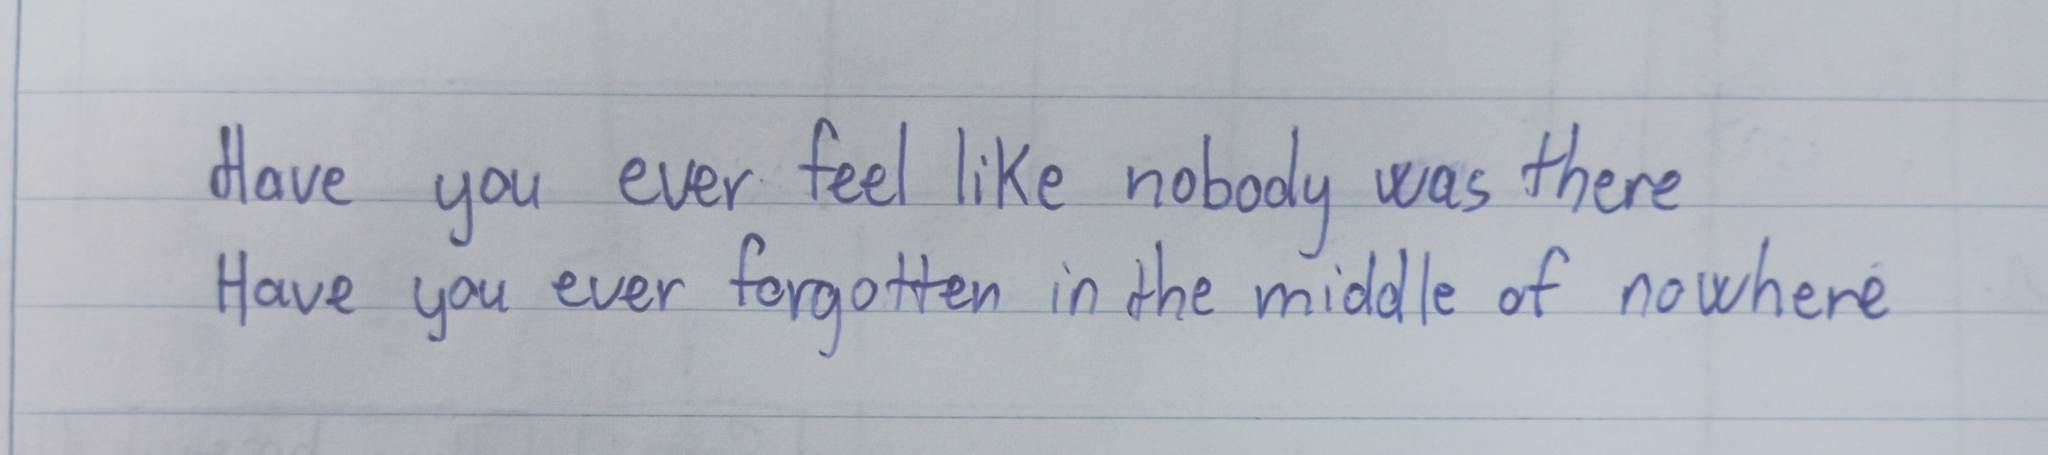 Have you ever feel like nobody was there
Have you ever forgotten in the middle of nowhere